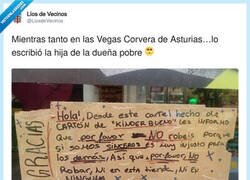 Líos de Vecinos
@LiosdeVecinos
Mientras tanto en las Vegas Corvera de Asturias...lo
escribió la hija de la dueña pobre 🥺
GRACIAS
Hola!, Desde este cartel hecho de
CARTON de "KINDER BUENO" les INFORMO
que por favor NO robeis porque
si somos SINCEROS es muy injusto para
los demás, Así que, por favor, No
Robar, Ni en esta tienda, Ni EN